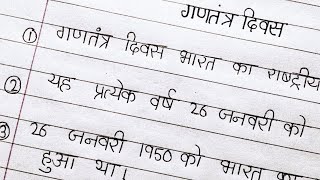 गणतंत्र दिवस
① गणतंत्र दिवस भारत का राष्ट्रीय
② यह प्रत्येक वर्ष 26 जनवरी को
③ 26 जनवरी 1950 को भारत का
हुआ था।